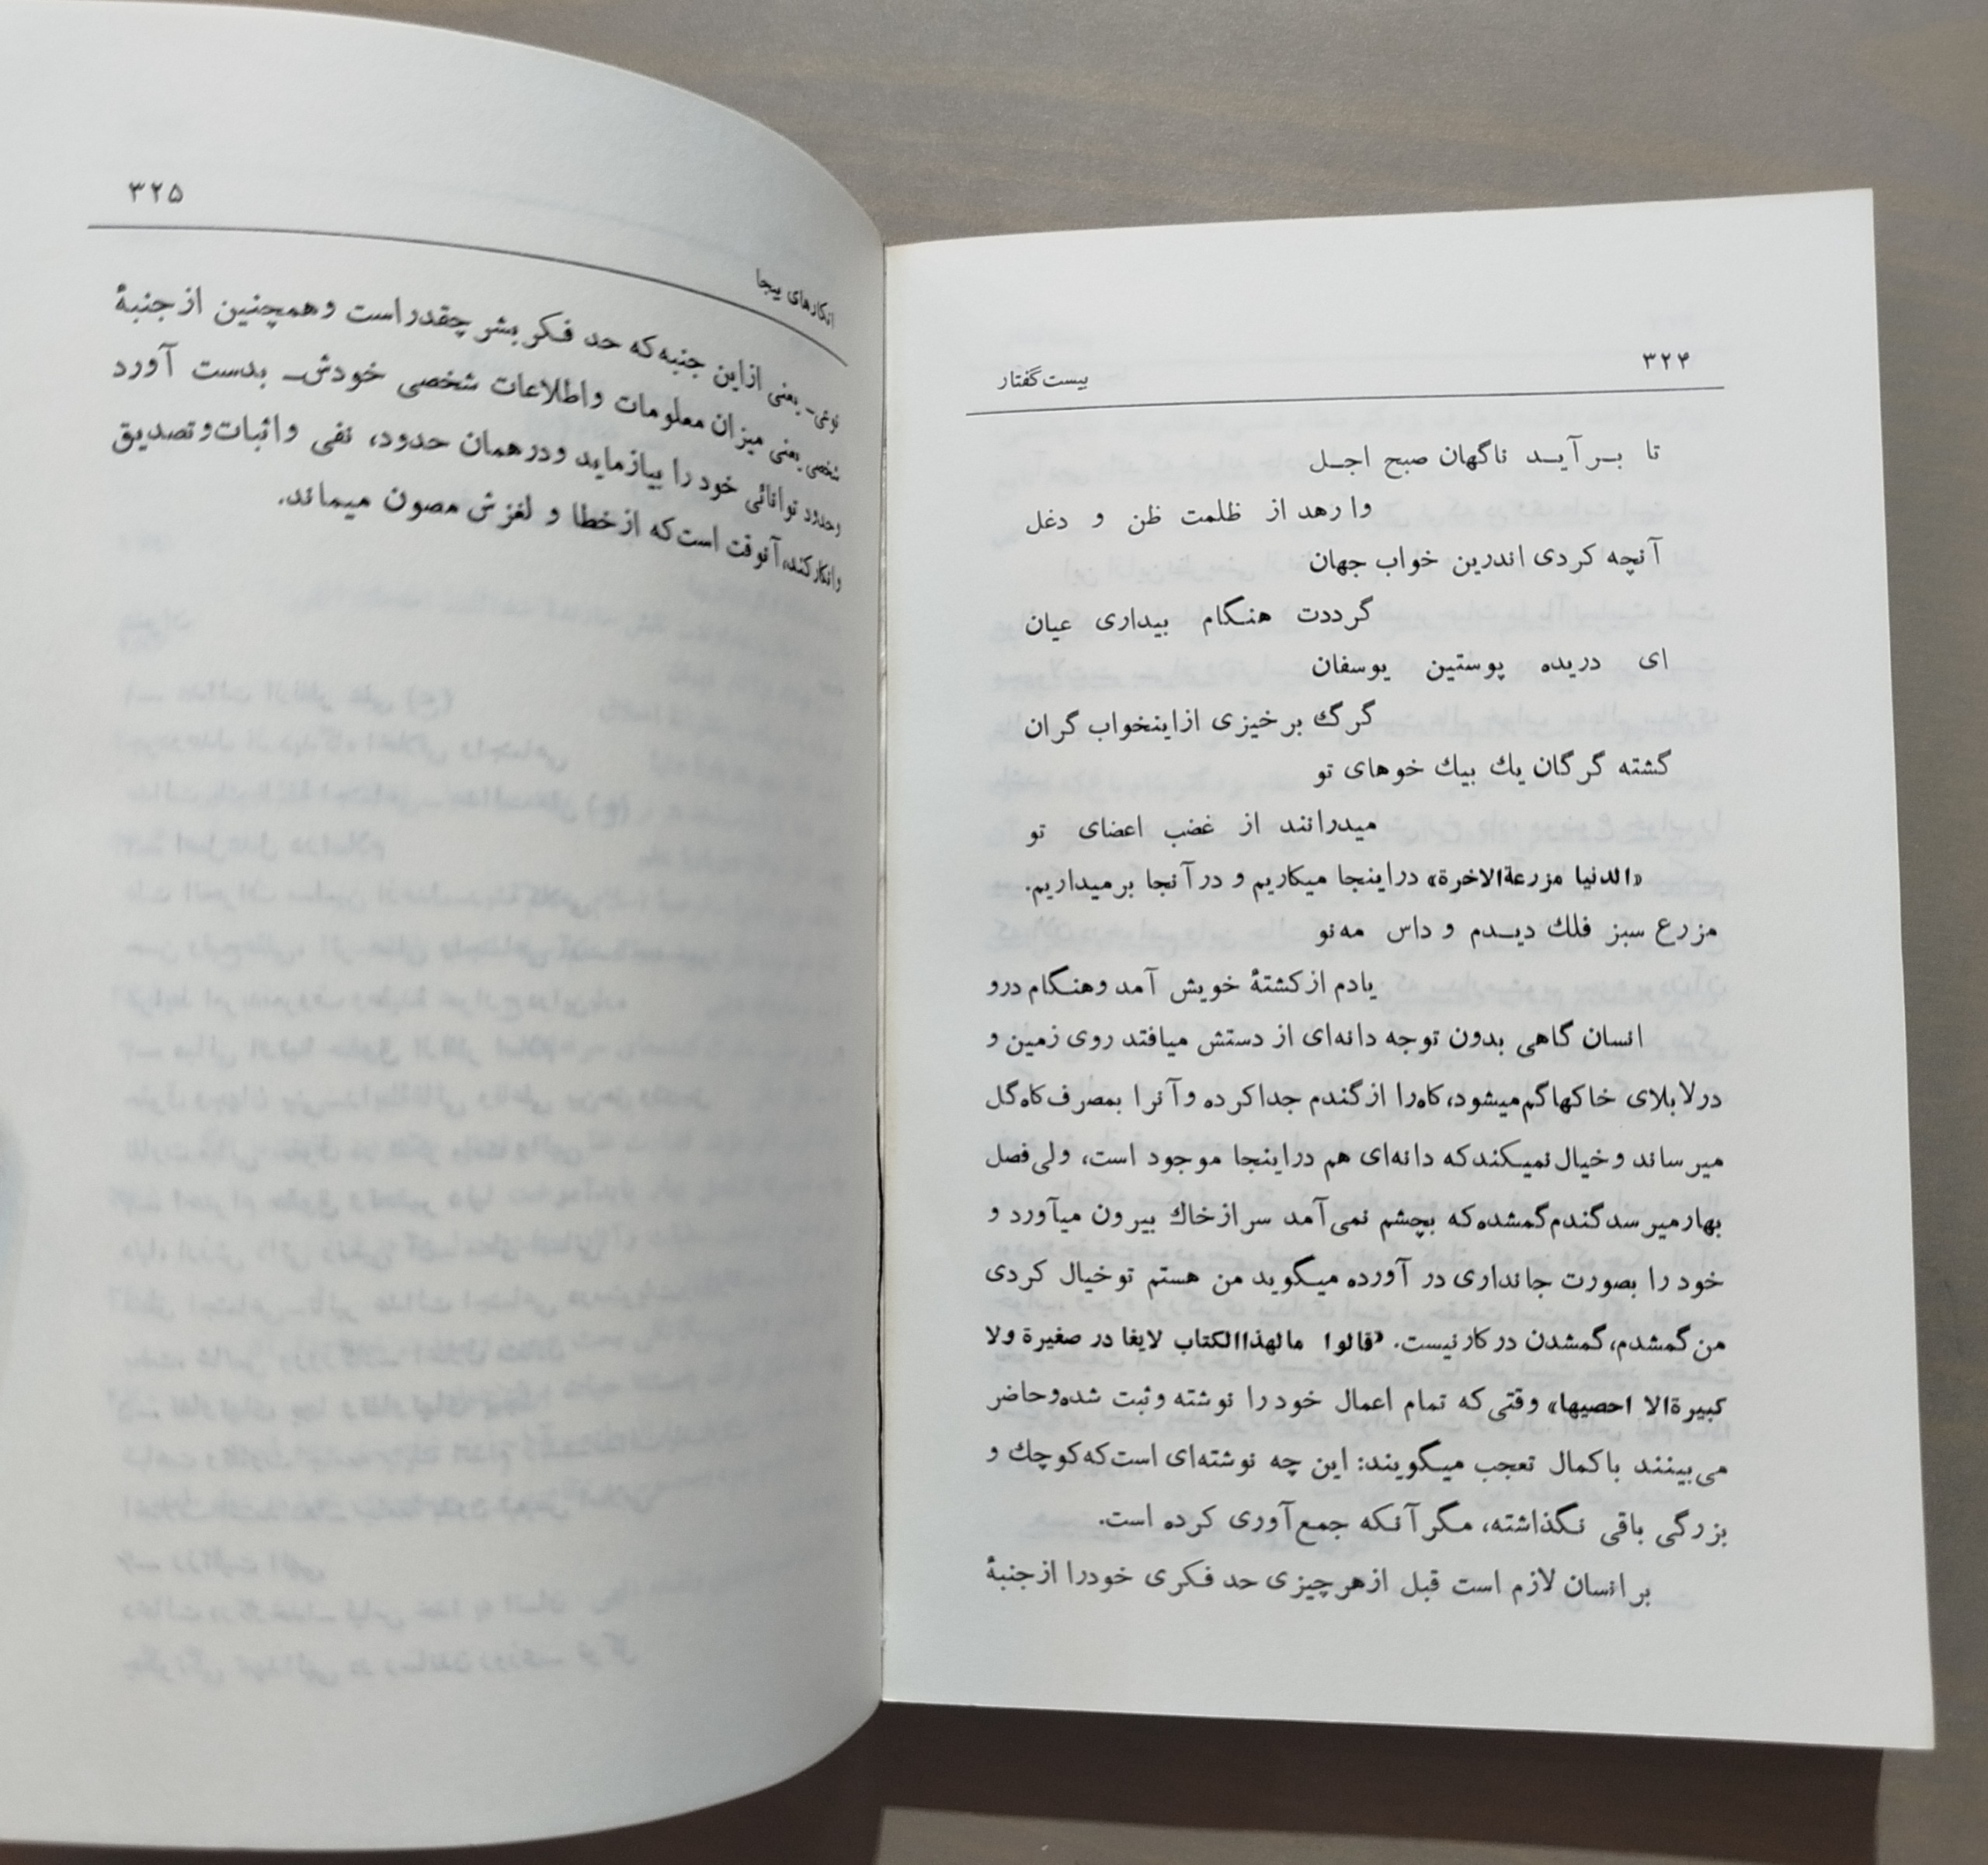 ۳۲۴
بیست گفتار
تا بــر آیــد ناگهان صبح اجــل
وا رهد از ظلمت ظن و دغل
آنچه کردی اندرین خواب جهان
گرددت هنگام بیداری عیان
ای دریده پوستین یوسفان
گرگ برخیزی ازاینخواب گران
گشته گرگان یك بیك خوهای تو
میدرانند از غضب اعضای تو
«الدنیا مزرعةالاخرة» دراینجا میکاریم و در آنجا برمیداریم.
مزرع سبز فلك دیــدم و داس مه‌نو
یادم از کشتهٔ خویش آمد وهنگام درو
انسان گاهی بدون توجه دانه‌ای از دستش میافتد روی زمین و
درلابلای خاکهاگم‌میشود، کاه‌را ازگندم جداکرده وآنرا بمصرف کاه‌گل
میرساند وخیال نمیکندکه دانه‌ای هم دراینجا موجود است، ولی فصل
بهارمیرسدگندم‌گمشده‌که بچشم نمی‌آمد سرازخاك بیرون میآورد و
خود را بصورت جانداری در آورده میگوید من هستم توخیال کردی
من گمشدم، گمشدن درکار نیست. «قالوا مالهذاالکتاب لایغا در صغیرة ولا
کبیرةالا احصیها» وقتی‌که تمام اعمال خود را نوشته وثبت شده‌وحاضر
می‌بینند باکمال تعجب میگویند: این چه نوشته‌ای است‌که‌کوچك و
بزرگی باقی نگذاشته، مگر آنکه جمع‌آوری کرده است.
بر انسان لازم است قبل ازهرچیزی حد فکری خودرا از جنبهٔ
۳۲۵
انکارهای بیجا
نوعی‌ـ یعنی ازاین جنبه‌که حد فکر بشر چقدراست وهمچنین از جنبهٔ
شخصی یعنی میزان معلومات واطلاعات شخصی خودش‌ـ بدست آورد
وحدود توانائی خود را بیازماید ودرهمان حدود، نفی واثبات‌وتصدیق
وانکارکند، آنوقت است‌که ازخطا و لغزش مصون میماند.